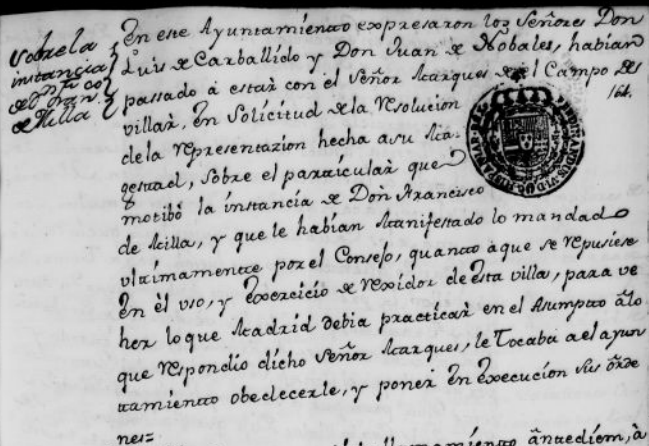 sobre la
instancia
de Dn. Franco.
de Milla
En este Ayuntamiento expresaron los Señores Don
Luis de Carballido y Don Juan de Nobales, habian
passado à estàr con el Señor Marques del Campo del
villàr, en Solicitud de la resolucion
de la representazion hecha a su Ma-
gestad, sobre el particulàr que
motibò la instancia de Don Francisco
de Milla, y que le habian Manifestado lo mandado
ultimamente por el Consejo, quanto à que se repusiese
en el uso, y exercicio de rexidor de esta villa, para ve
her lo que Madrid debia practicàr en el Asumpto à lo
que respondio dicho Señor Marques, le Tocaba a el ayun
tamiento obedecerle, y ponèr en execucion sus òrde
nes=
161.